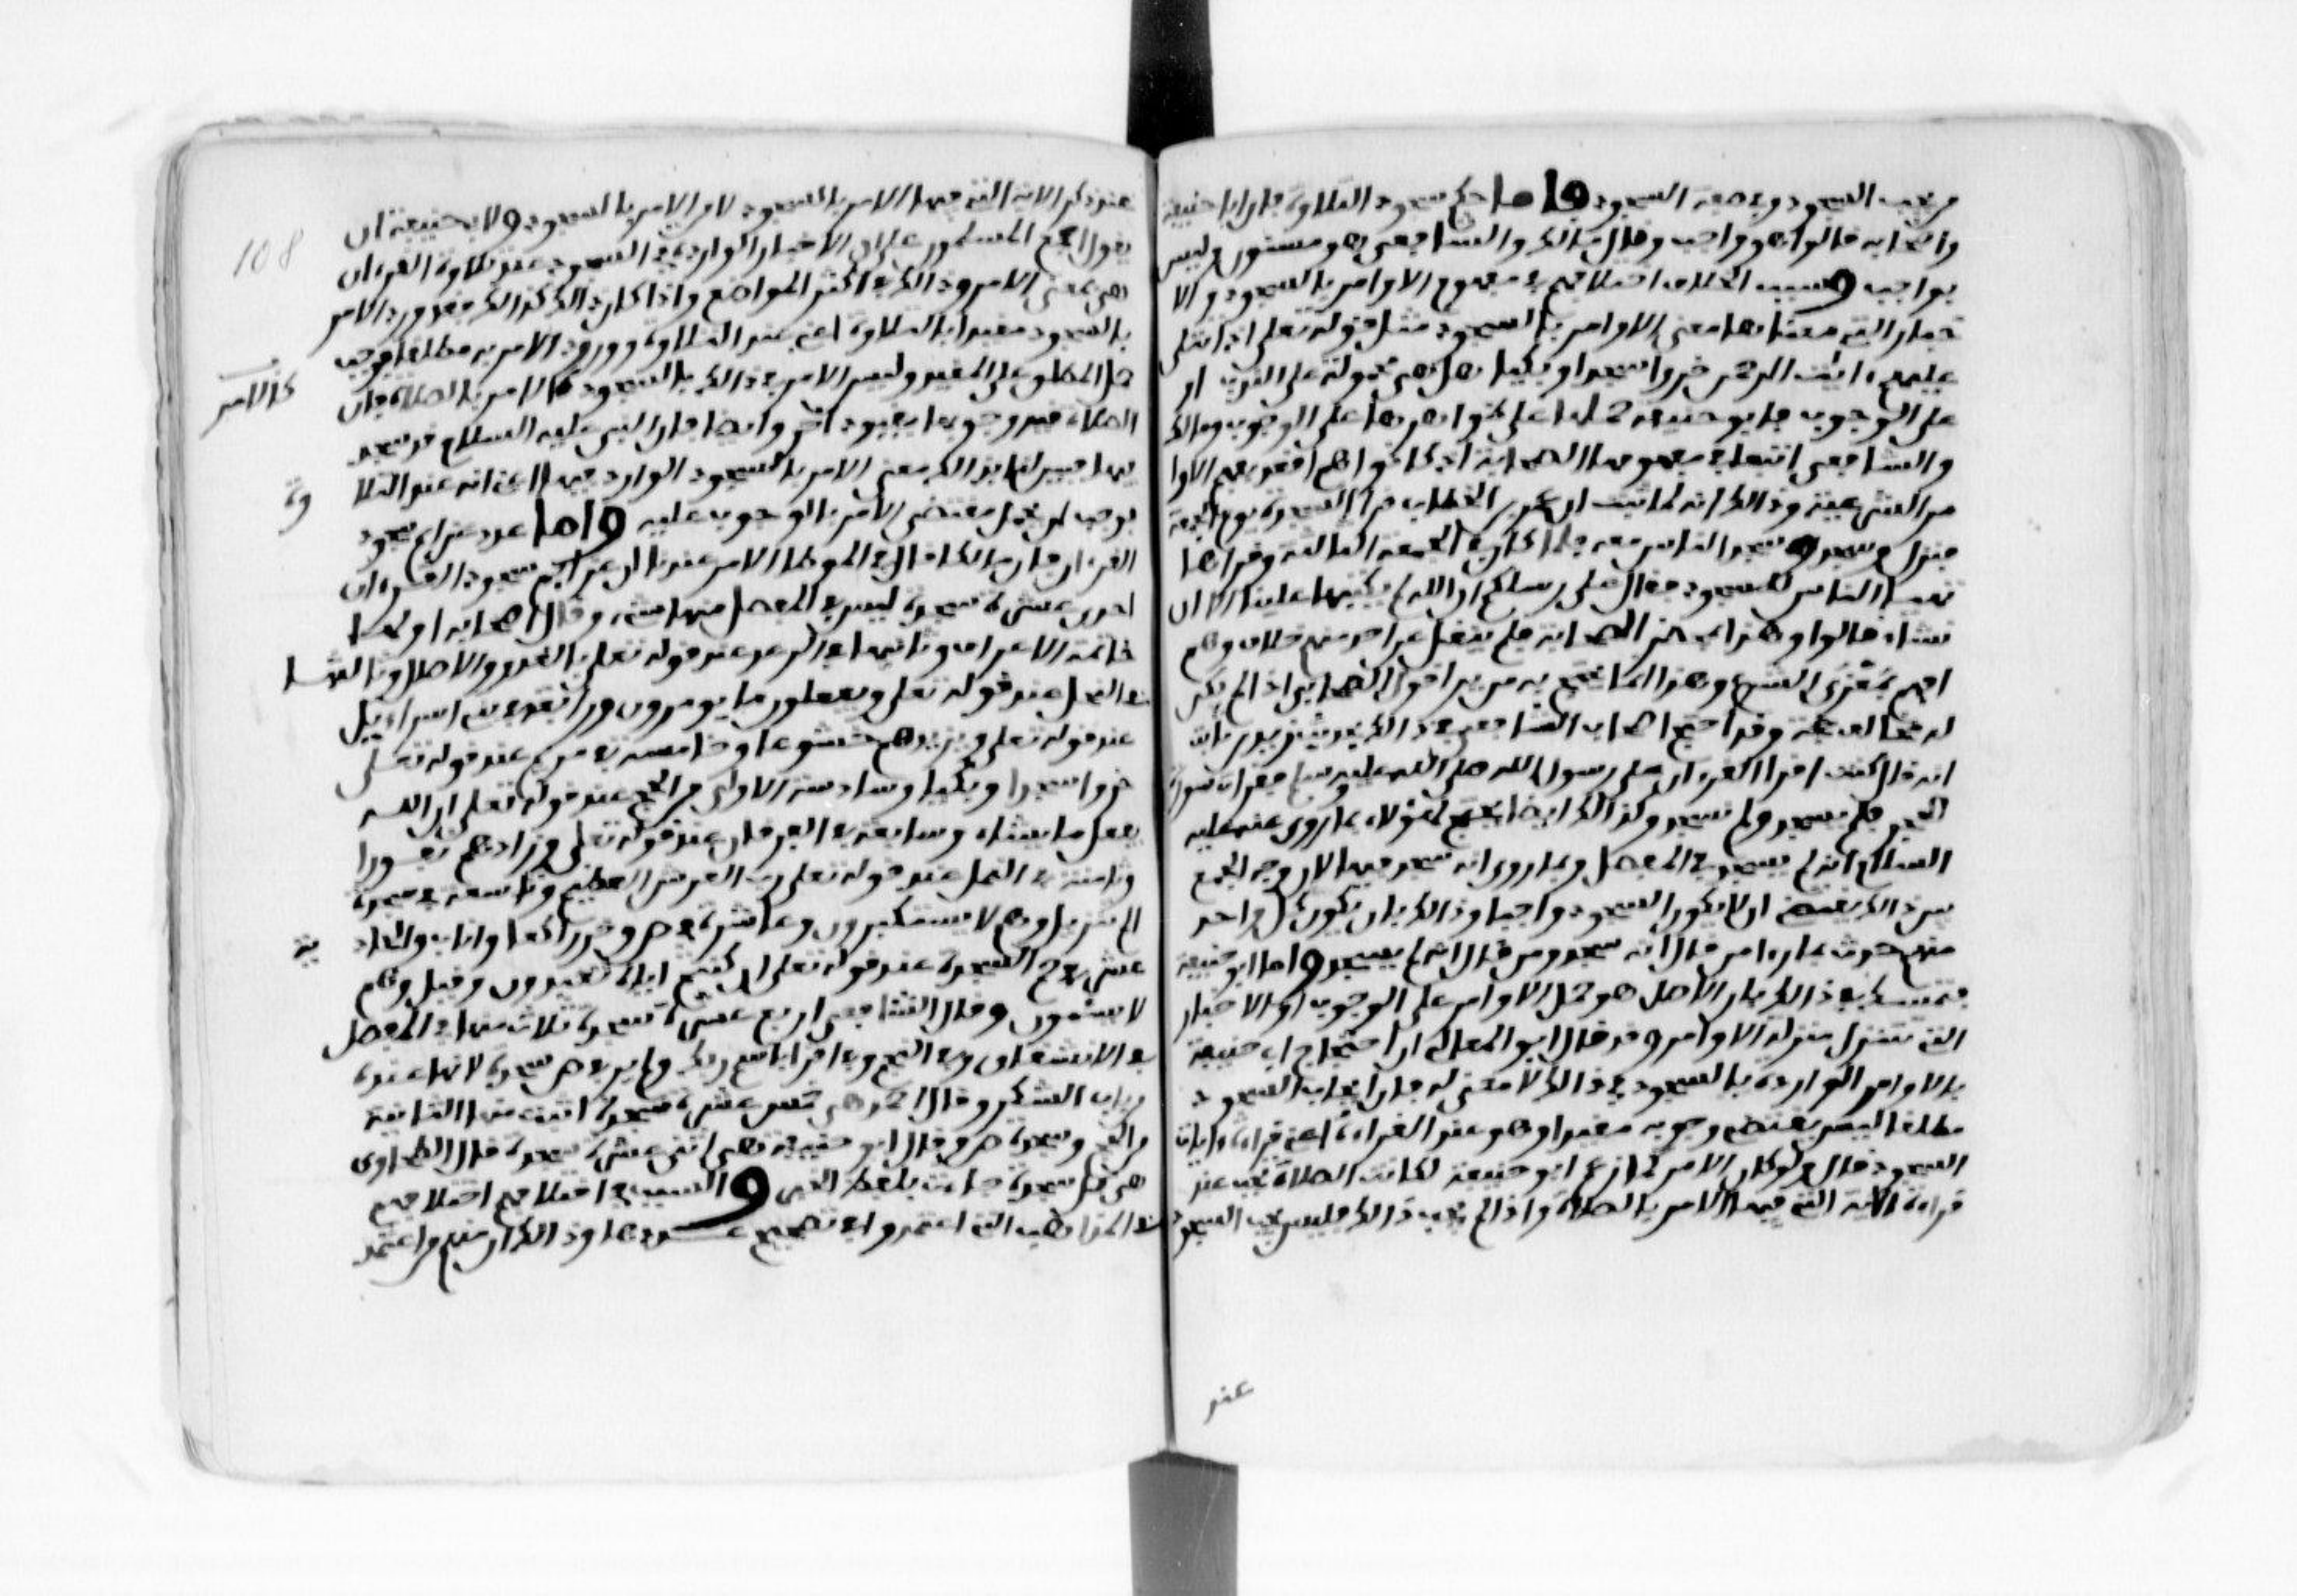 من يجب السجود وصفة السجود فاما حكم سجود التلاوة فان ابا حنيفة
واصحابه قالوا هو واجب وقال مالك والشافعي هو مسنون وليس
بواجب وسبب الخلاف اختلافهم في مفهوم الاوامر بالسجود والا
خبار التي معناها معنى الاوامر بالسجود مثل قوله تعلى اذا تتلى
عليهم ءايات الرحمن خروا سجدا وبكيا هل هي محمولة على الندب او
على الوجوب فابو حنيفة حملها على ظواهرها على الوجوب ومالك
والشافعي اتبعا في مفهومها الصحابة اذ كانوا هم افقد بفهم الاوا
مر الشرعية وذالك انه لما ثبت ان عمر بن الخطاب قرا السجدة يوم الجمعة
فنزل وسجد وسجد الناس معه فلما كان في الجمعة الثانية وقراها
تهيا الناس للسجود فقال على رسلكم ان الله لم يكتبها علينا الا ان
نشاء قالوا وهذا بمحضر الصحابة فلم ينقل عن احد منهم خلاف وهم
افهم بمغزى الشرع وهذا انما يحتج به من يرى قول الصحابي اذا لم يكن
له مخالف حجة وقد احتج اصحاب الشافعي في ذالك بحديث زيد بن ثابت
انه قال كنت اقرا القرءان على رسول الله صلى الله عليه وسلم فقرات سورة
الحج فلم يسجد ولم نسجد وكذالك ايضا يحتج لهؤلاء بما روى عنه عليه
السلام انه لم يسجد في المفصل وبما روى انه سجد فيها لان وجه الجمع
بين ذالك يقتضي ان لا يكون السجود واجبا وذالك بان يكون كل واحد
منهم حدث بما راى من قال انه سجد ومن قال انه لم يسجد واما ابو حنيفة
فتمسك في ذالك بان الاصل هو حمل الاوامر على الوجوب او الاخبار
التي تتنزل منزلة الاوامر وقد قال ابو المعالي ان احتجاج ابي حنيفة
بالاوامر الواردة بالسجود في ذالك لا معنى له فان ايجاب السجود
مطلقا ليس يقتضي وجوبه مقيدا وهو عند القراءة اعني قراءة ءايات
السجود قال ولو كان الامر كما زعم ابو حنيفة لكانت الصلاة تجب عند
قراءة الاية التي فيها الامر بالصلاة واذا لم يجب ذالك فليس يجب السجود
عند
عند ذكر الاية التي فيها الامر بالسجود لان الامر بالسجود ولابي حنيفة ان
يقول اجمع المسلمون على ان الاخبار الواردة في السجود عند تلاوة القرءان
هي بمعنى الامر وذالك في اكثر المواضع واذا كان ذالك كذالك فقد ورد الامر
بالسجود مقيدا بالتلاوة اعني عند التلاوة وورود الامر به مطلقا فوجب
حمل المطلق على المقيد وليس الامر في ذالك بالسجود كالامر بالصلاة فان
كالامر
الصلاة قيد وجوبها بقيود اخر وايضا فان النبي عليه السلام قد سجد
فيها فبين لنا بذالك معنى الامر بالسجود الوارد فيها اعني انه عند التلا
وة
فوجب ان يحمل مقتضى الامر بالوجوب عليه واما عدد عزائم سجود
القرءان فان مالكا قال في الموطا الامر عندنا ان عزائم سجود القرءان
احدى عشرة سجدة ليس في المفصل منها شيء وقال اصحابه اولها
خاتمة الاعراف وثانيها في الرعد عند قوله تعلى بالغدو والاصال وثالثها
في النحل عند قوله تعلى ويفعلون ما يومرون ورابعة في بني اسراءيل
عند قوله تعلى ويزيدهم خشوعا وخامسة في مريم عند قوله تعلى
خروا سجدا وبكيا وسادسة الاولى من الحج عند قوله تعلى ان الله
يفعل ما يشاء وسابعة في الفرقان عند قوله تعلى وزادهم نفورا
وثامنة في النمل عند قوله تعلى رب العرش العظيم وتاسعة في سجدة
الم تنزيل وهم لا يستكبرون وعاشرة في ص وخر راكعا واناب والحاد
ية
عشر في حم السجدة عند قوله تعلى ان كنتم اياه تعبدون وقيل وهم
لا يسئمون وقال الشافعي اربع عشرة سجدة ثلاث منها في المفصل
في الانشقاق وفي النجم وفي اقرا باسم ربك ولم ير في ص سجدة لانها عنده
من باب الشكر وقال احمد هي خمس عشرة سجدة اثبت منها الثانية
من الحج وسجدة ص وقال ابو حنيفة هي اثنى عشرة سجدة قال الطحاوي
هي كل سجدة جاءت بلفظ الخبر والسبب في اختلافهم اختلافهم
في المذاهب التي اعتمدوا في تصحيح عددها وذالك ان منهم من اعتمد
108